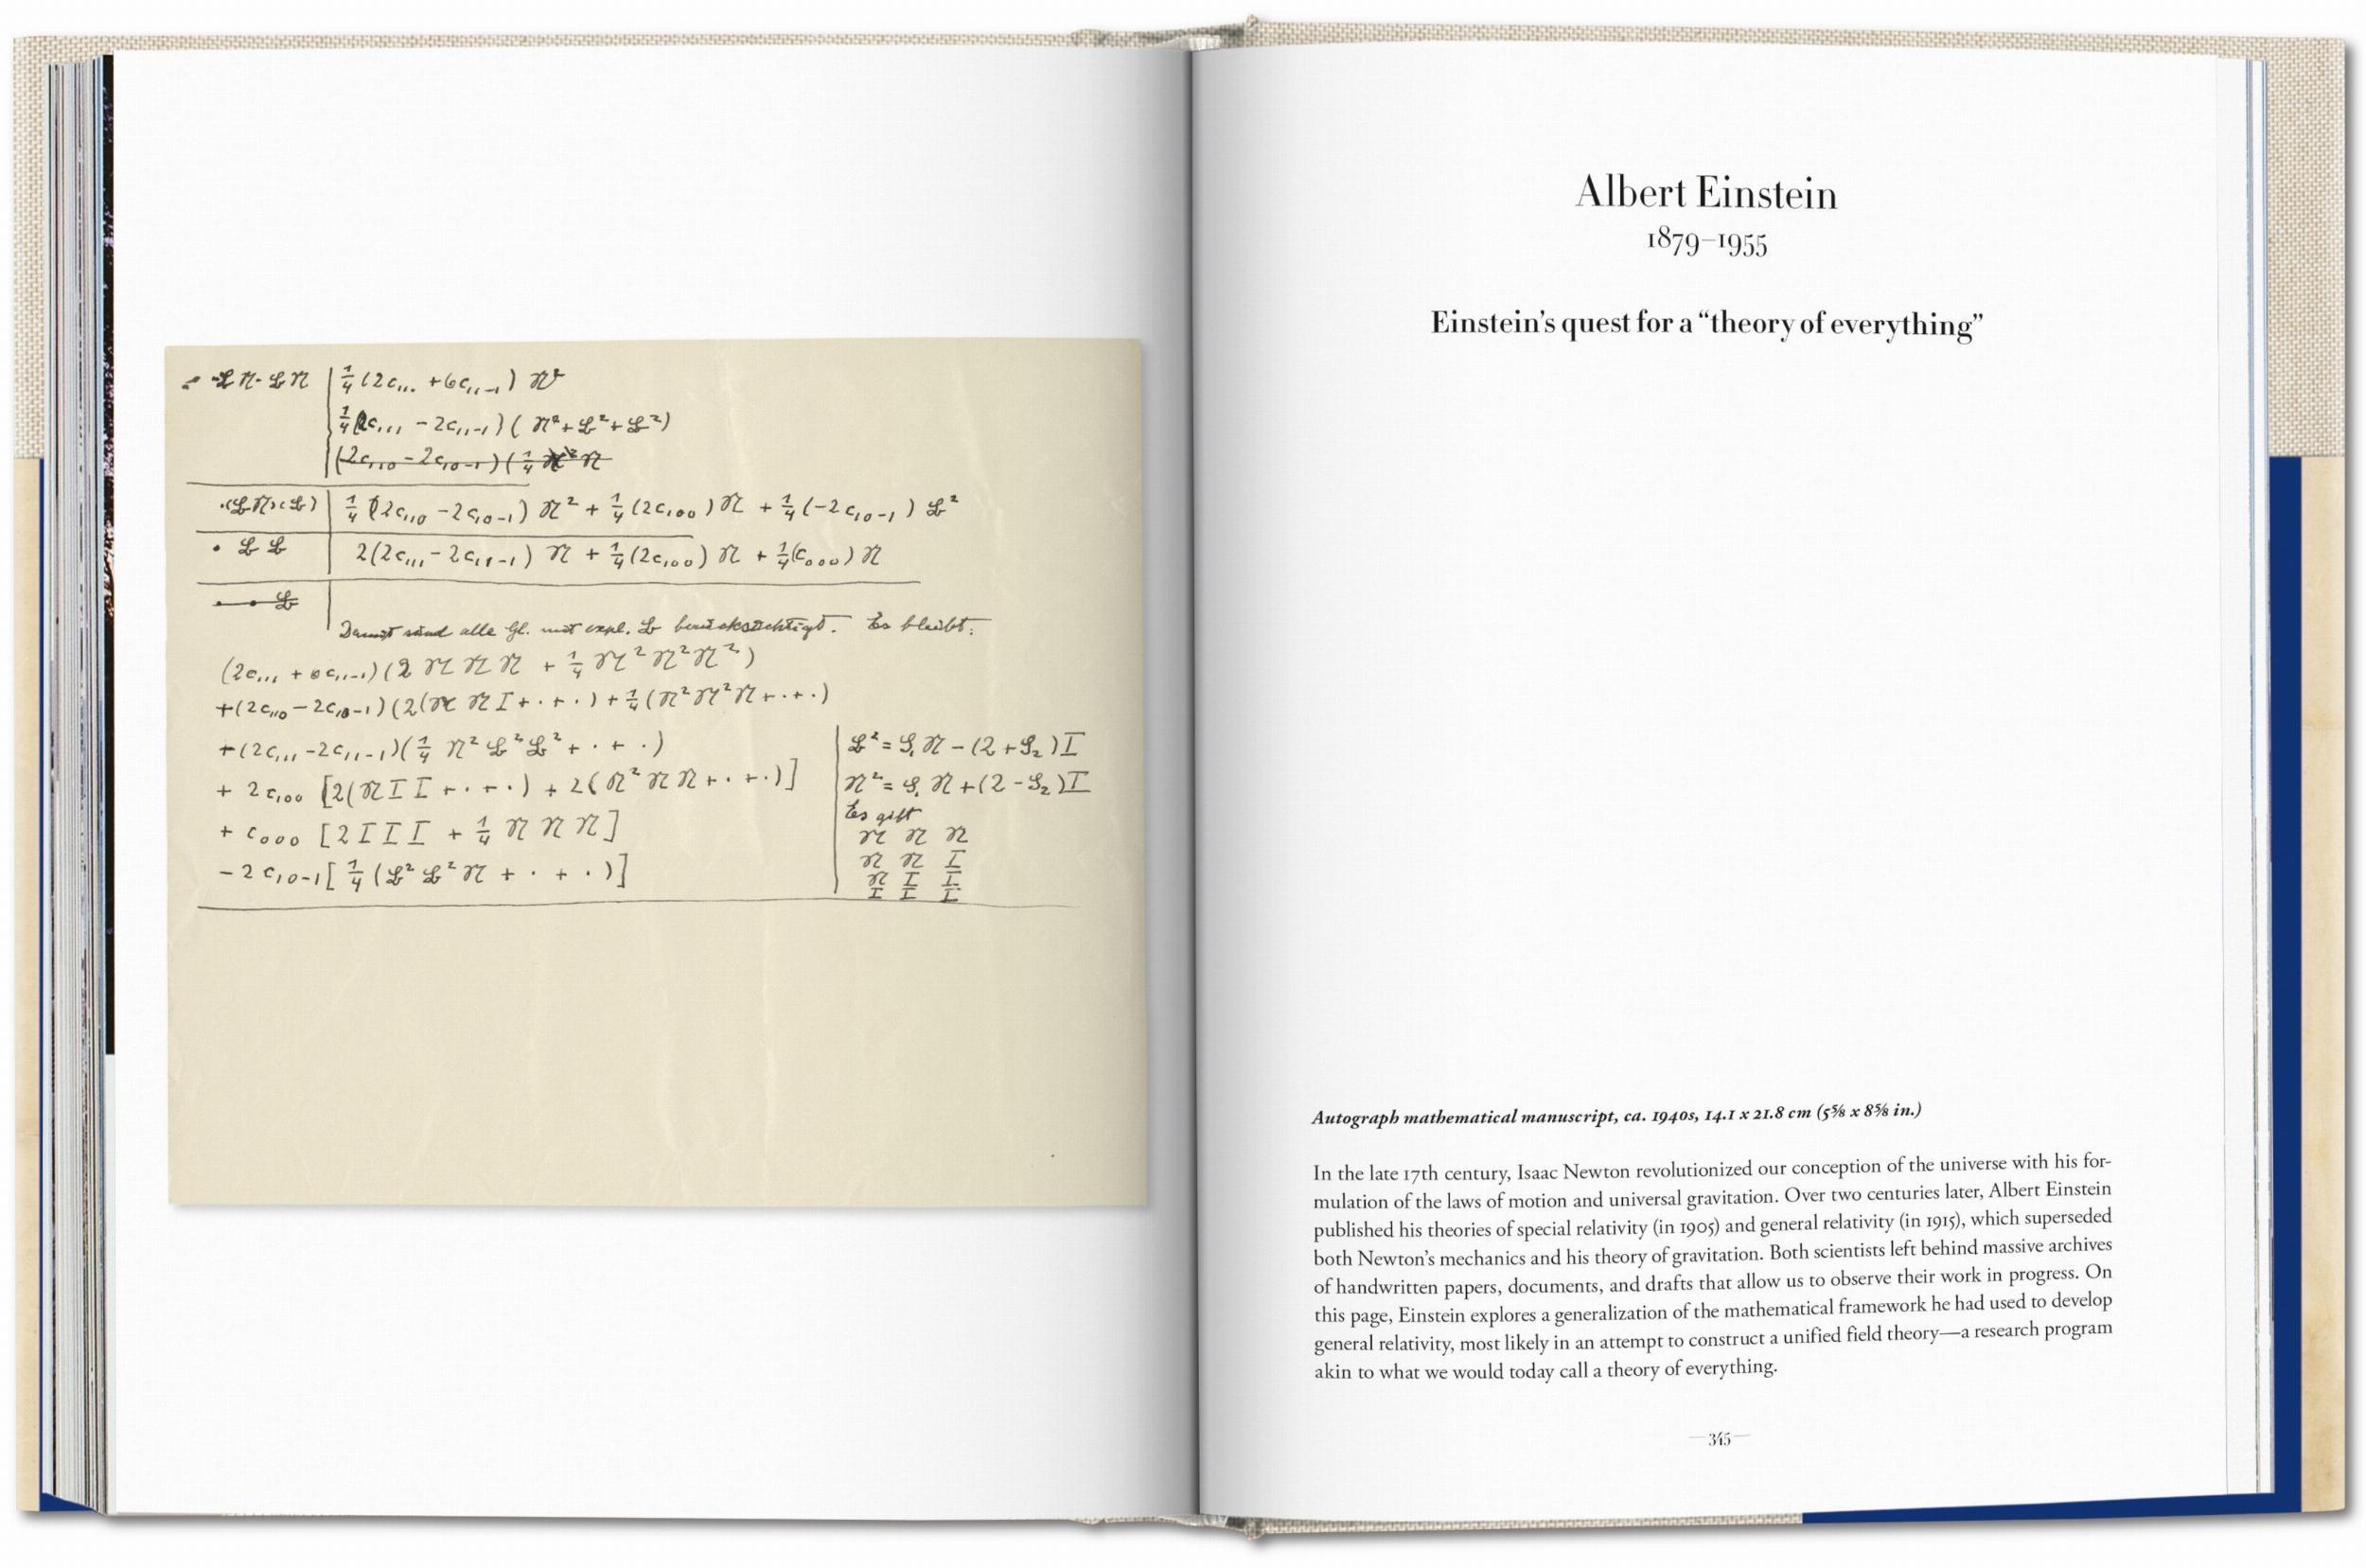 -𝔏 𝔑 · 𝔏 𝔑 | 1/4 (2c₁₁₁ + 6c₁₁₋₁)
1/4 (2c₁₁₁ - 2c₁₁₋₁) ( 𝔑² + 𝔏² + 𝔏²)
(2c₁₁₀ - 2c₁₀₋₁) (1/4 𝔑
·(𝔏 𝔑)(𝔏) | 1/4 (2c₁₁₀ - 2c₁₀₋₁) 𝔑² + 1/4 (2c₁₀₀) 𝔑 + 1/4 (-2c₁₀₋₁) 𝔏²
· 𝔏 𝔏 | 2(2c₁₁₁ - 2c₁₁₋₁) 𝔑 + 1/4 (2c₁₀₀) 𝔑 + 1/4 (c₀₀₀) 𝔑
𝔏
Damit sind alle Gl. mit expl. 𝔏 berücksichtigt. Es bleibt:
(2c₁₁₁ + 6c₁₁₋₁) (2 𝔑 𝔑 𝔑 + 1/4 𝔑² 𝔑² 𝔑²)
+(2c₁₁₀ - 2c₁₀₋₁) (2(𝔑 𝔑 I + · + ·) + 1/4 (𝔑² 𝔑² 𝔑 + · + ·)
+(2c₁₁₁ - 2c₁₁₋₁) (1/4 𝔑² 𝔏² 𝔏² + · + ·)
+ 2c₁₀₀ [2(𝔑 I I + · + ·) + 2(𝔑² 𝔑 𝔑 + · + ·)]
+ c₀₀₀ [2 I I I + 1/4 𝔑 𝔑 𝔑]
- 2c₁₀₋₁ [1/4 (𝔏² 𝔏² 𝔑 + · + ·)]
𝔏² = 𝒮₁ 𝔑 - (2 + 𝒮₂) I
𝔑² = 𝒮₁ 𝔑 + (2 - 𝒮₂) I
Es gibt
𝔑 𝔑 𝔑
𝔑 𝔑 I
𝔑 I I
I I I
Albert Einstein
1879–1955
Einstein’s quest for a “theory of everything”
Autograph mathematical manuscript, ca. 1940s, 14.1 x 21.8 cm (5⅝ x 8⅝ in.)
In the late 17th century, Isaac Newton revolutionized our conception of the universe with his for-
mulation of the laws of motion and universal gravitation. Over two centuries later, Albert Einstein
published his theories of special relativity (in 1905) and general relativity (in 1915), which superseded
both Newton’s mechanics and his theory of gravitation. Both scientists left behind massive archives
of handwritten papers, documents, and drafts that allow us to observe their work in progress. On
this page, Einstein explores a generalization of the mathematical framework he had used to develop
general relativity, most likely in an attempt to construct a unified field theory—a research program
akin to what we would today call a theory of everything.
— 345 —